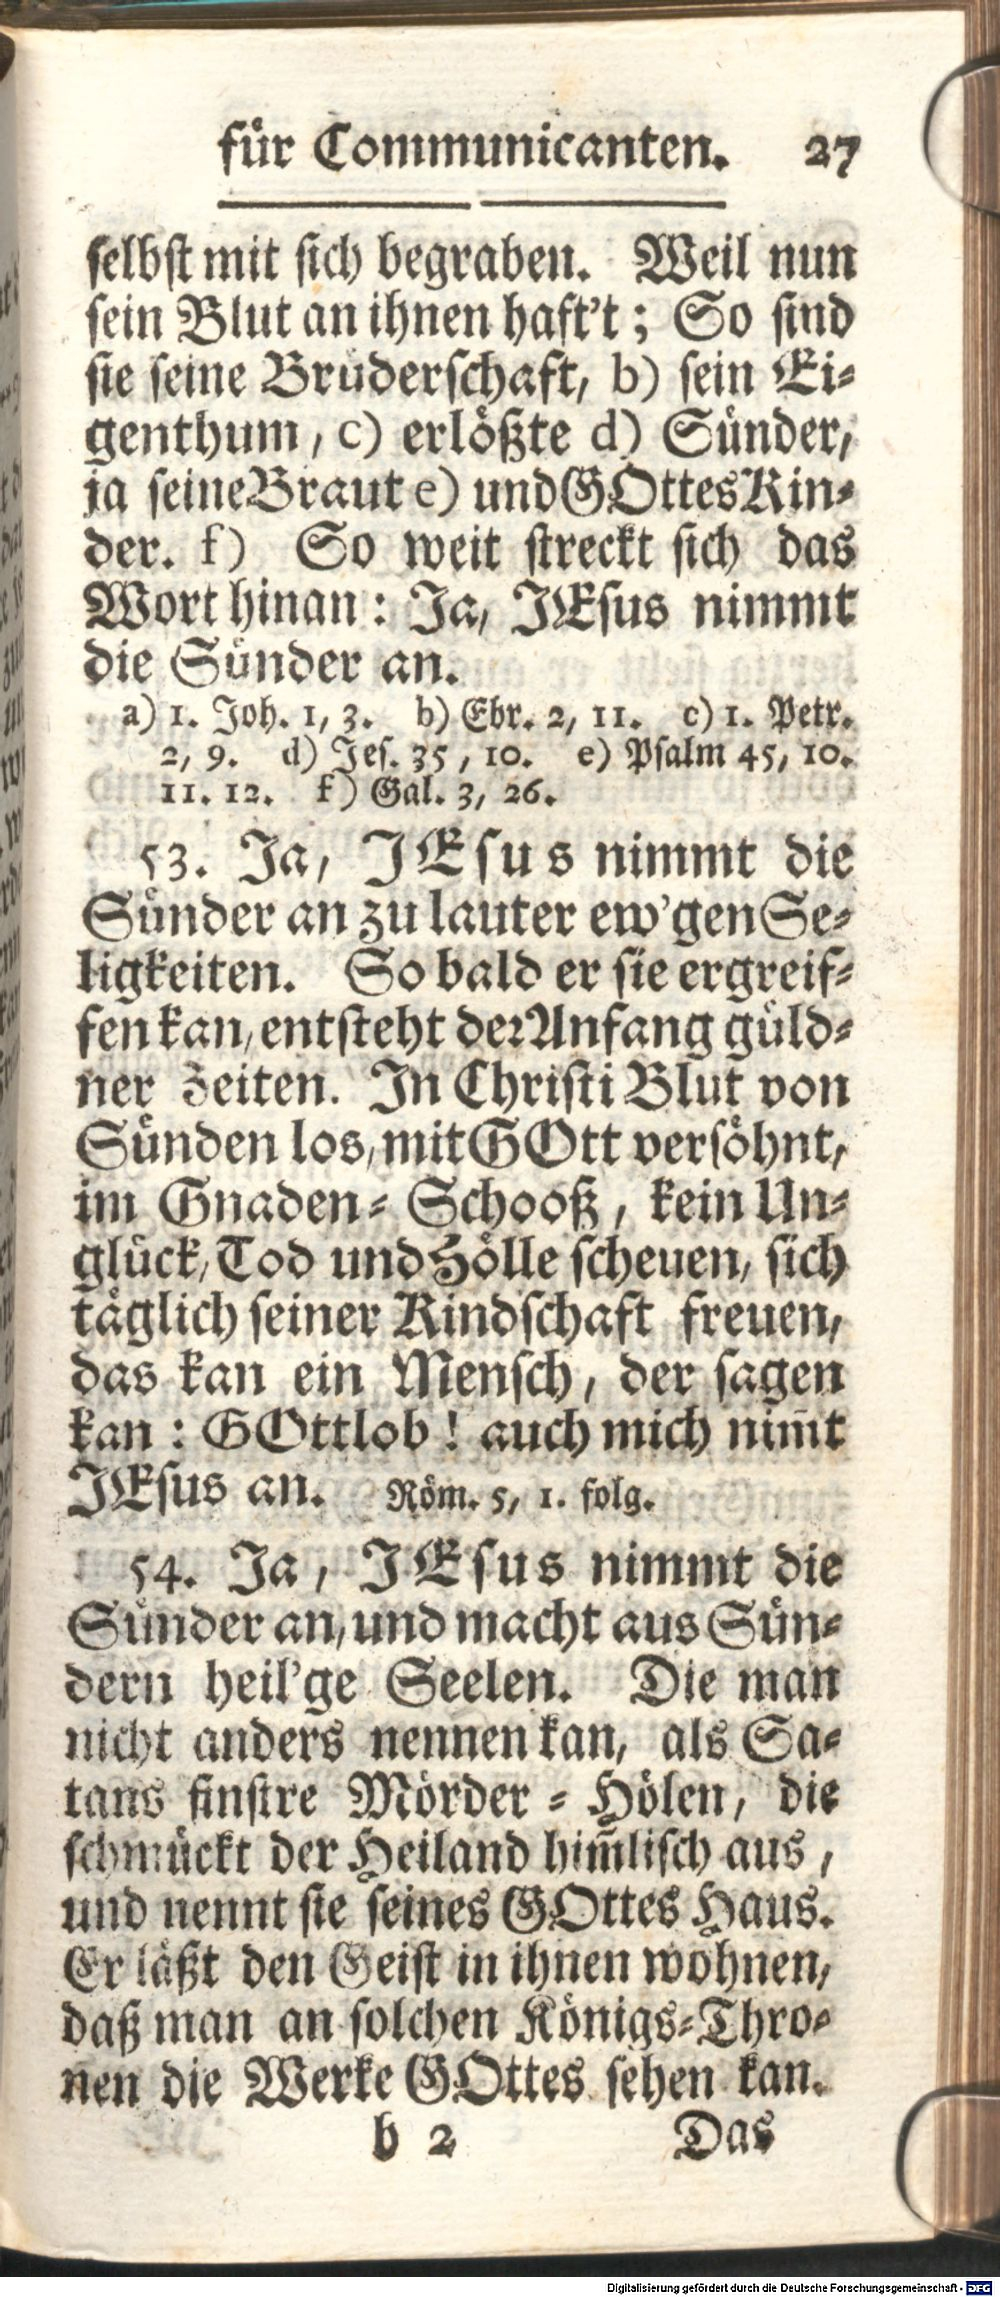 für Communicanten. 27
selbst mit sich begraben. Weil nun
sein Blut an ihnen haft't; So sind
sie seine Brüderschaft, b) sein Ei-
genthum, c) erlößte d) Sünder,
ja seine Braut e) und GOttes Kin-
der. f) So weit streckt sich das
Wort hinan: Ja, JEsus nimmt
die Sünder an.
a) 1. Joh. 1, 3. b) Ebr. 2, 11. c) 1. Petr.
2, 9. d) Jes. 35, 10. e) Psalm 45, 10.
11. 12. f) Gal. 3, 26.
53. Ja, JEsus nimmt die
Sünder an zu lauter ew'gen Se-
ligkeiten. So bald er sie ergreif-
fen kan, entsteht der Anfang güld-
ner Zeiten. In Christi Blut von
Sünden los, mit GOtt versöhnt,
im Gnaden-Schooß, kein Un-
glück, Tod und Hölle scheuen, sich
täglich seiner Kindschaft freuen,
das kan ein Mensch, der sagen
kan: GOttlob! auch mich nim̄t
JEsus an. Röm. 5, 1. folg.
54. Ja, JEsus nimmt die
Sünder an, und macht aus Sün-
dern heil'ge Seelen. Die man
nicht anders nennen kan, als Sa-
tans finstre Mörder-Hölen, die
schmückt der Heiland him̄lisch aus,
und nennt sie seines GOttes Haus.
Er läßt den Geist in ihnen wohnen,
daß man an solchen Königs-Thro-
nen die Werke GOttes sehen kan.
b 2 Das
Digitalisierung gefördert durch die Deutsche Forschungsgemeinschaft - DFG